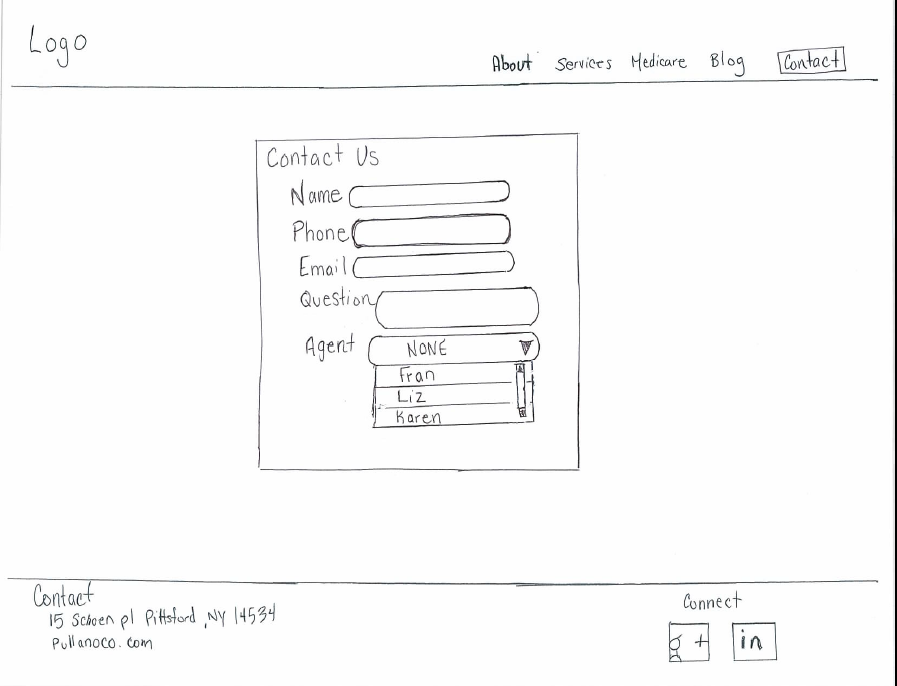 Logo
About Services Medicare Blog Contact
Contact Us
Name
Phone
Email
Question
Agent NONE
Fran
Liz
Karen
Contact
15 Schoen pl Pittsford, NY 14534
Pullanoco.com
Connect
g+ in